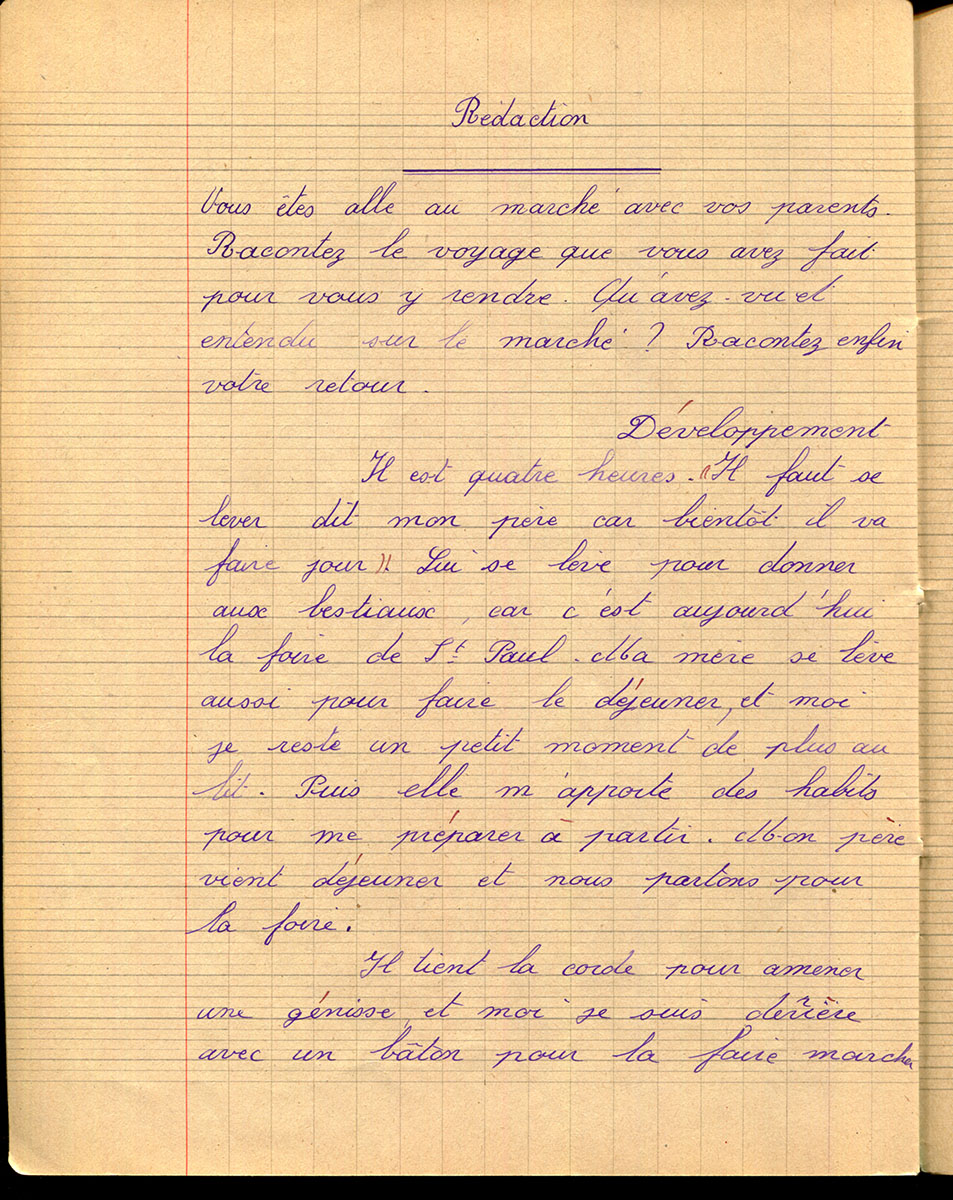 Rédaction
Vous êtes alle au marché avec vos parents.
Racontez le voyage que vous avez fait
pour vous y rendre. Qu'avez-vu et
entendu sur le marché ? Racontez enfin
votre retour.
Développement
Il est quatre heures. "Il faut se
lever dit mon père car bientôt il va
faire jour". Lui se lève pour donner
aux bestiaux, car c'est aujourd'hui
la foire de St Paul. Ma mère se lève
aussi pour faire le déjeuner, et moi
je reste un petit moment de plus au
lit. Puis elle m'apporte des habits
pour me préparer à partir. Mon père
vient déjeuner et nous partons pour
la foire.
Il tient la corde pour amener
une génisse, et moi je suis dérière
avec un bâton pour la faire marcher